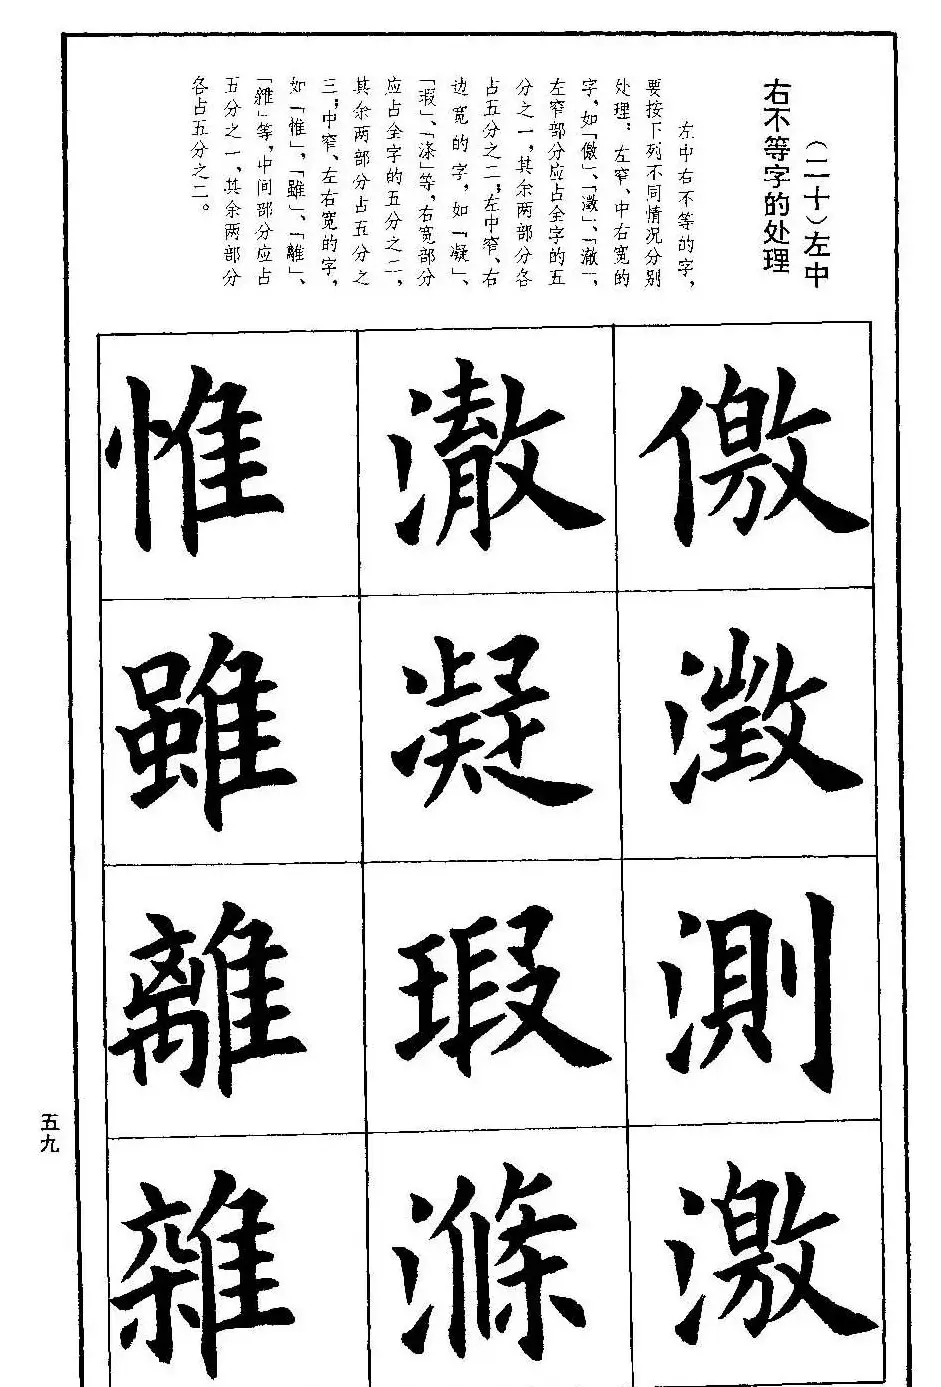 （二十）左中
右不等字的处理
左中右不等的字，
要按下列不同情况分别
处理：左窄、中右宽的
字，如「儌」、「激」、「澈」，
左窄部分应占全字的五
分之一，其余两部分各
占五分之二；左中窄、右
边宽的字，如「凝」、
「瑕」、「涤」等，右宽部分
应占全字的五分之二，
其余两部分占五分之
三；中窄、左右宽的字，
如「惟」，「雖」、「離」、
「雜」等，中间部分应占
五分之一，其余两部分
各占五分之二。
儌澂測激
澈凝瑕滌
惟雖離雜
五九